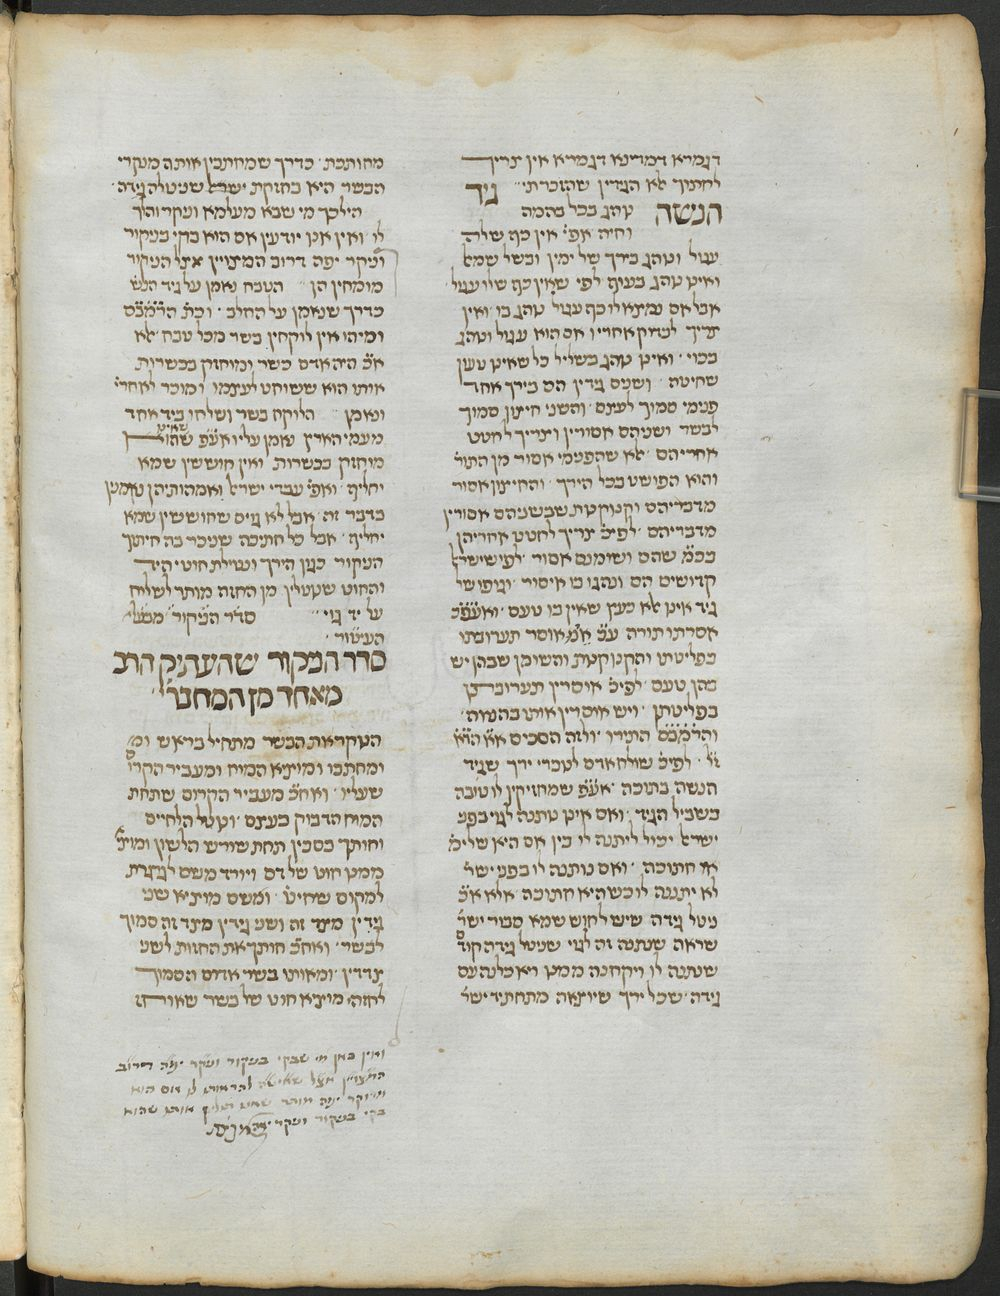 דגמרא דמדינא דגמרא אין צריך
לחתוך אלא הגידין שהזכרתי גיד
הנשה נוהג בכל בהמה
וחיה אפי' אין כף שלה
עגול ונוהג בירך של ימין ובשל שמאל
ואינו נוהג בעוף לפי שאין כף שלו עגול
אבל אם נמצא לו כף עגול נוהג בו ואין
צריך לבדוק אחריו אם הוא עגול ונוהג
בכוי ואינו נוהג בשליל כל שאינו טעון
שחיטה ושנים גידין הם בירך אחד
פנימי סמוך לעצם והשני חיצון סמוך
לבשר ושניהם אסורין וצריך לחטט
אחריהם אלא שהפנימי אסור מן התור'
והוא הפושט בכל הירך והחיצון אסור
מדבריהם וקנוקנות שבשניהם אסורין
מדבריהם לפיכ' צריך לחטט אחריהן
בכ"מ שהם ושומנם אסור לפי שישראל
קדושים הם ונהגו בו איסור וגופו של
גיד אינו אלא כעץ שאין בו טעם ואעפ"כ
אסרתו תורה ע"כ אינו אוסר תערובתו
בפליטתו והקנוקנות והשומן שבהן יש
בהן טעם לפיכ' אוסרין תערובתן
בפליטתן ויש אוסרין אותו בהנאה
והרמב"ם התירו ולזה הסכים א"א הרא"ש
ז"ל לפיכ' שולח אדם לנכרי ירך שגיד
הנשה בתוכה אע"פ שמחזיקין לו טובה
בשביל הגיד ואם אינו נותנה לגוי בפני
ישראל יכול ליתנה לו בין אם היא שלימ'
או חתוכה ואם נותנה לו בפני ישר'
לא יתננה לו כשהיא חתוכה אלא א"כ
ניטל גידה שיש לחוש שמא סבור ישר'
שראה שנתנה זה לגוי שניטל גידה קוד'
שנתנה לו ויקחנה ממנו ויאכלנה עם
גידה שכל ירך שיוצאה מתחת יד ישר'
מחותכת כדרך שמחתכין אותה מנקרי
הבשר היא בחזקת ישראל שניטלה גידה
הילכך מי שבא מעלמא ונקר והלך
לו ואין אנו יודעין אם הוא בקי בניקור
וניקר יפה דרוב המצויין אצל הניקור
מומחין הן הטבח נאמן על גיד הנש'
כדרך שנאמן על החלב וכת' הרמב"ם
ומיהו אין לוקחין בשר מכל טבח אלא
א"כ היה אדם כשר ומוחזק בכשרות
אותו הוא ששוחט לעצמו ומוכר לאחרי'
ונאמן הלוקח בשר ושלחו ביד אחד
מעמי הארץ נאמן עליו אע"פ שאינו
מוחזק בכשרות ואין חוששין שמא
יחליף ואפי' עבדי ישראל ואמהותיהן נאמנין
בדבר זה אבל לא גוים שחוששין שמא
יחליף אבל כל חתיכה שניכר בה חיתוך
הניקור כגון הירך ונטילת חוטי היד
והחוט שנוטלין מן החזה מותר לשלוח
על יד גוי סדר הניקור מבעל
העיטור
סדר הניקור שהעתיק הרב
מאחד מן המחבר'
הנוקר את הבשר מתחיל בראש ומ'
ומחתכו ומוציא המוח ומעביר הקרו'
שעליו ואח"כ מעביר הקרום שתחת
המוח הדבוק בעצם ונוטל הלחיים
וחותך בסכין תחת שורש הלשון ומוצי'
ממנו חוט של דם ויורד משם לגרגרת
למקום שחיט' ומשם מוציא שני
גידין מצד זה ושני גידין מצד זה סמוך
לבשר ואח"כ חותך את החזות לשני
צדדין ומאותו בשר אדום הסמוך
לחזה מוציא חוט של בשר שאורח'
ואין כאן מי שבקי בניקור ונקר יפה דרוב